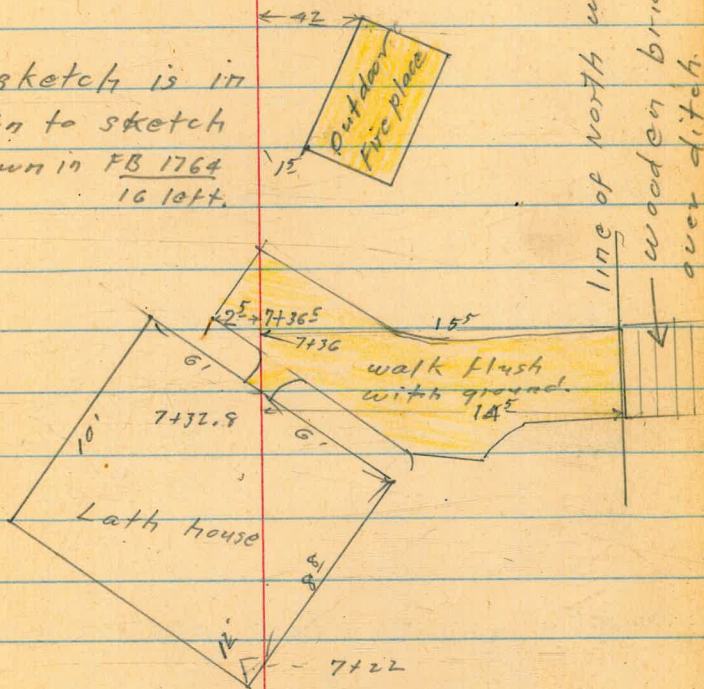 42
sketch is in
n to sketch
wn in FB 1764
16 left.
Outdoor
Fireplace
1⁵
line of North w
wooden bri
over ditch.
2⁵
7+36⁵
15⁵
7+36
walk flush
with ground.
14⁵
6'
7+32.8
6'
10'
Lath house
8⁸'
12'
7+22